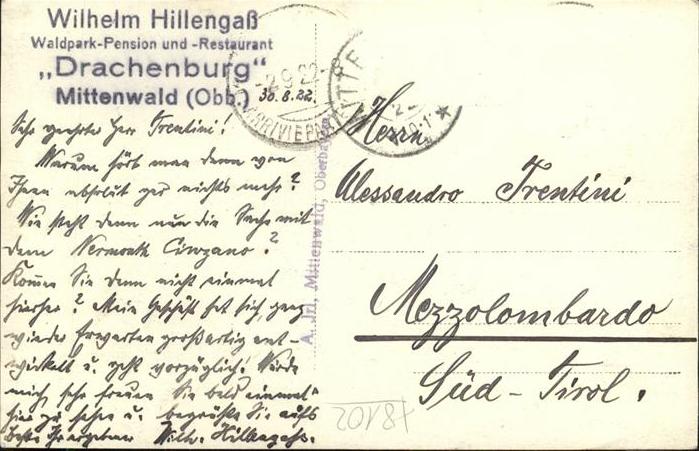 Wilhelm Hillengaß
Waldpark-Pension und -Restaurant
„Drachenburg"
Mittenwald (Obb.)
30.8.22.
Sehr geehrter Herr Trentini!
Warum hört man denn von
Ihnen absolut gar nichts mehr?
Wie steht denn nun die Sache mit
dem Vermouth Cinzano?
Kommen Sie denn nicht einmal
hierher? Mein Geschäft hat sich ganz
wieder Erwarten großartig ent-
wickelt u. geht vorzüglich! Würde
mich sehr freuen Sie bald einmal
hier zu sehen u. begrüße Sie aufs
beste Ihr ergebener Wilh. Hillengaß.
A. Irl, Mittenwald, Oberbayern
Herrn
Alessandro Trentini
Mezzolombardo
Süd-Tirol.
-2.9.22-
20187